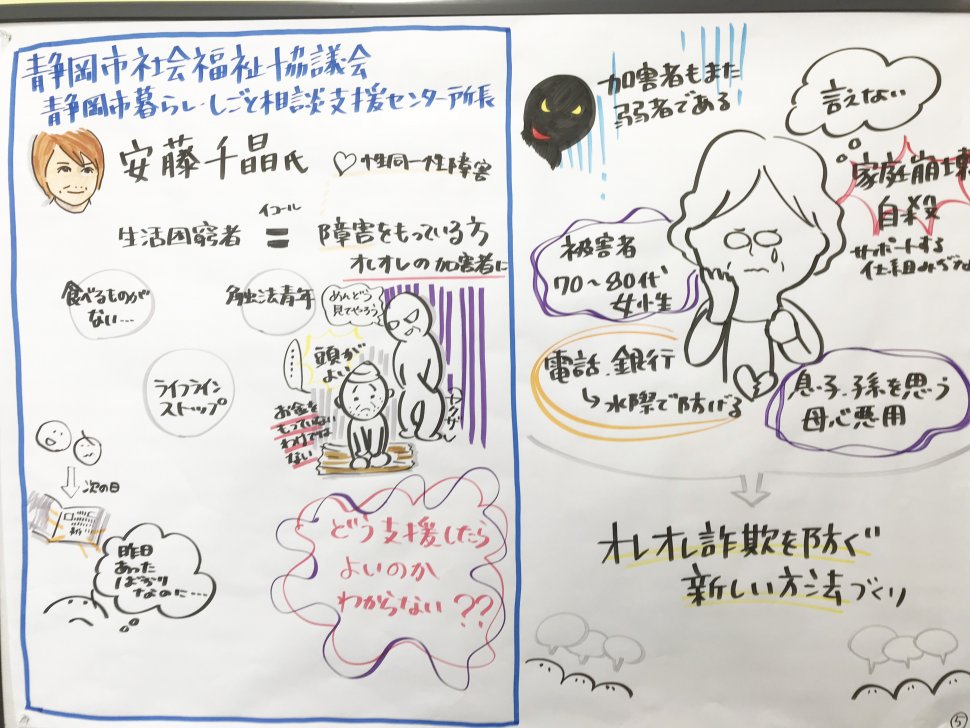 静岡市社会福祉協議会
静岡市暮らし・しごと相談支援センター所長
安藤千晶氏
♡性同一性障害
イコール
生活困窮者 = 障害をもっている方
オレオレの加害者に
食べるものが
ない…
触法青年
めんどう
見てやろう
頭が
よい
ヤクザ
ライフライン
ストップ
お金を
もっていない
わけでは
ない
次の日
昨日
あった
ばかり
なのに…
どう支援したら
よいのか
わからない??
加害者もまた
弱者である
言えない
家庭崩壊
自殺
サポートする
仕組み
被害者
70~80代
女性
電話、銀行
↳水際で防げる
息子、孫を思う
母心悪用
オレオレ詐欺を防ぐ
新しい方法づくり
⑤